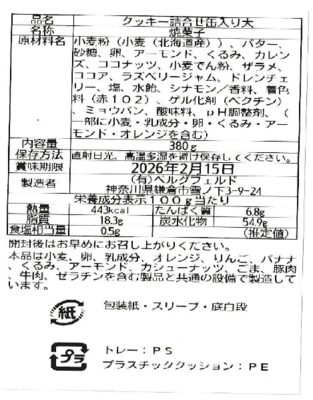 品名 クッキー詰合せ缶入り大
名称 焼菓子
原材料名 小麦粉（小麦（北海道産））、バター、
砂糖、卵、アーモンド、くるみ、カレン
ズ、ココナッツ、小麦でん粉、ザラメ、
ココア、ラズベリージャム、ドレンチェ
リー、塩、水飴、シナモン／香料、着色
料（赤１０２）、ゲル化剤（ペクチン）
、ミョウバン、酸味料、ｐＨ調整剤、（
一部に小麦・乳成分・卵・くるみ・アー
モンド・オレンジを含む）
内容量 380g
保存方法 直射日光、高温多湿を避け保存してください。
賞味期限 2026年2月15日
製造者 (有)ベルグフェルド
神奈川県鎌倉市雪ノ下3-9-24
栄養成分表示１００ｇ当たり
熱量 443kcal たんぱく質 6.8g
脂質 18.3g 炭水化物 54.9g
食塩相当量 0.5g (推定値)
開封後はお早めにお召し上がりください。
本品は小麦、卵、乳成分、オレンジ、りんご、バナナ
、くるみ、アーモンド、カシューナッツ、ごま、豚肉
、牛肉、ゼラチンを含む製品と共通の設備で製造して
います。
紙 包装紙・スリーブ・底白段
プラ トレー：ＰＳ
プラスチッククッション：ＰＥ